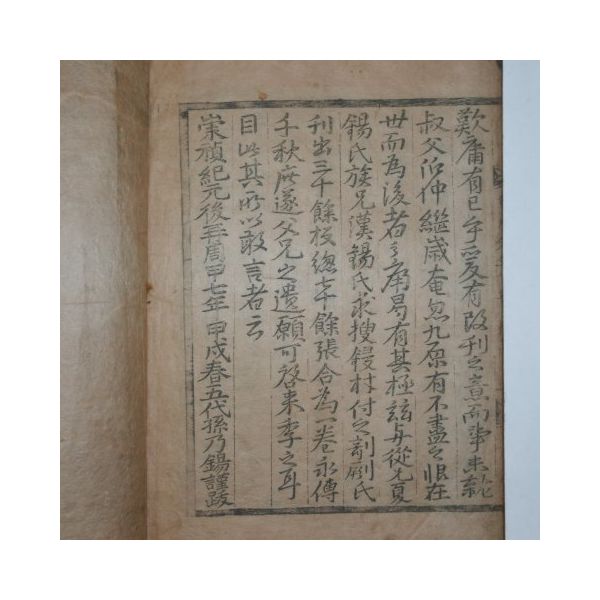 歎庸有已乎爰有改刊之意而事未就
叔父伯仲繼歲奄忽九原有不盡之恨在
世而為後者之痛曷有其極玆与從兄夏
錫氏族兄漢錫氏求搜鋟材付之剞劂氏
刊出三千餘板總七千餘張合為一卷永傳
千秋庶遂父兄之遺願可啓來季之耳
目此其所以敢言者云
崇禎紀元後五周甲七年甲戌春五代孫乃錫謹跋